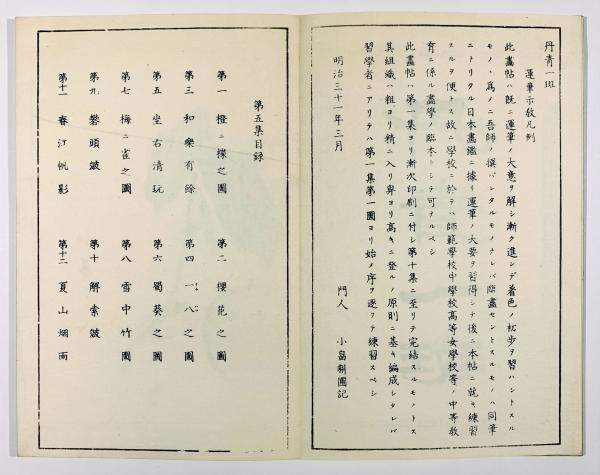 丹青一斑
運筆示教凡例
此畫帖ハ既ニ運筆ノ大意ヲ解シ漸ク進ンデ着色ノ初歩ヲ習ハントスル
モノヽ爲メニ吾師ノ撰バレタルモノナレバ臨畫セントスルモノハ同筆
ニトリタル日本畫鑑ニ據リ運筆ノ大要ヲ習得シテ後ニ本帖ニ就キ練習
スルヲ便トス故ニ學校ニ於テハ師範學校中學校高等女學校等ノ中等敎
育ニ係ル畫學ノ臨本トシテ可ナルベシ
此畫帖ハ第一集ヨリ漸次印刷ニ付シ第十集ニ至リテ完結スルモノトス
其組織ハ粗ヨリ精ニ入リ卑ヨリ高キニ登ルノ原則ニ基キ編成シタレバ
習學者ニアリテハ第一集第一圖ヨリ始メ序ヲ逐フテ練習スベシ
明治三十一年三月
門人 小畠耕圃記
第五集目録
第一 橙ニ橪之圖 第二 櫻花之圖
第三 和樂有餘 第四 一八之圖
第五 坐右清玩 第六 蜀葵之圖
第七 梅ニ雀之圖 第八 雪中竹圖
第九 礬頭皴 第十 解索皴
第十一 春江帆影 第十二 夏山烟雨